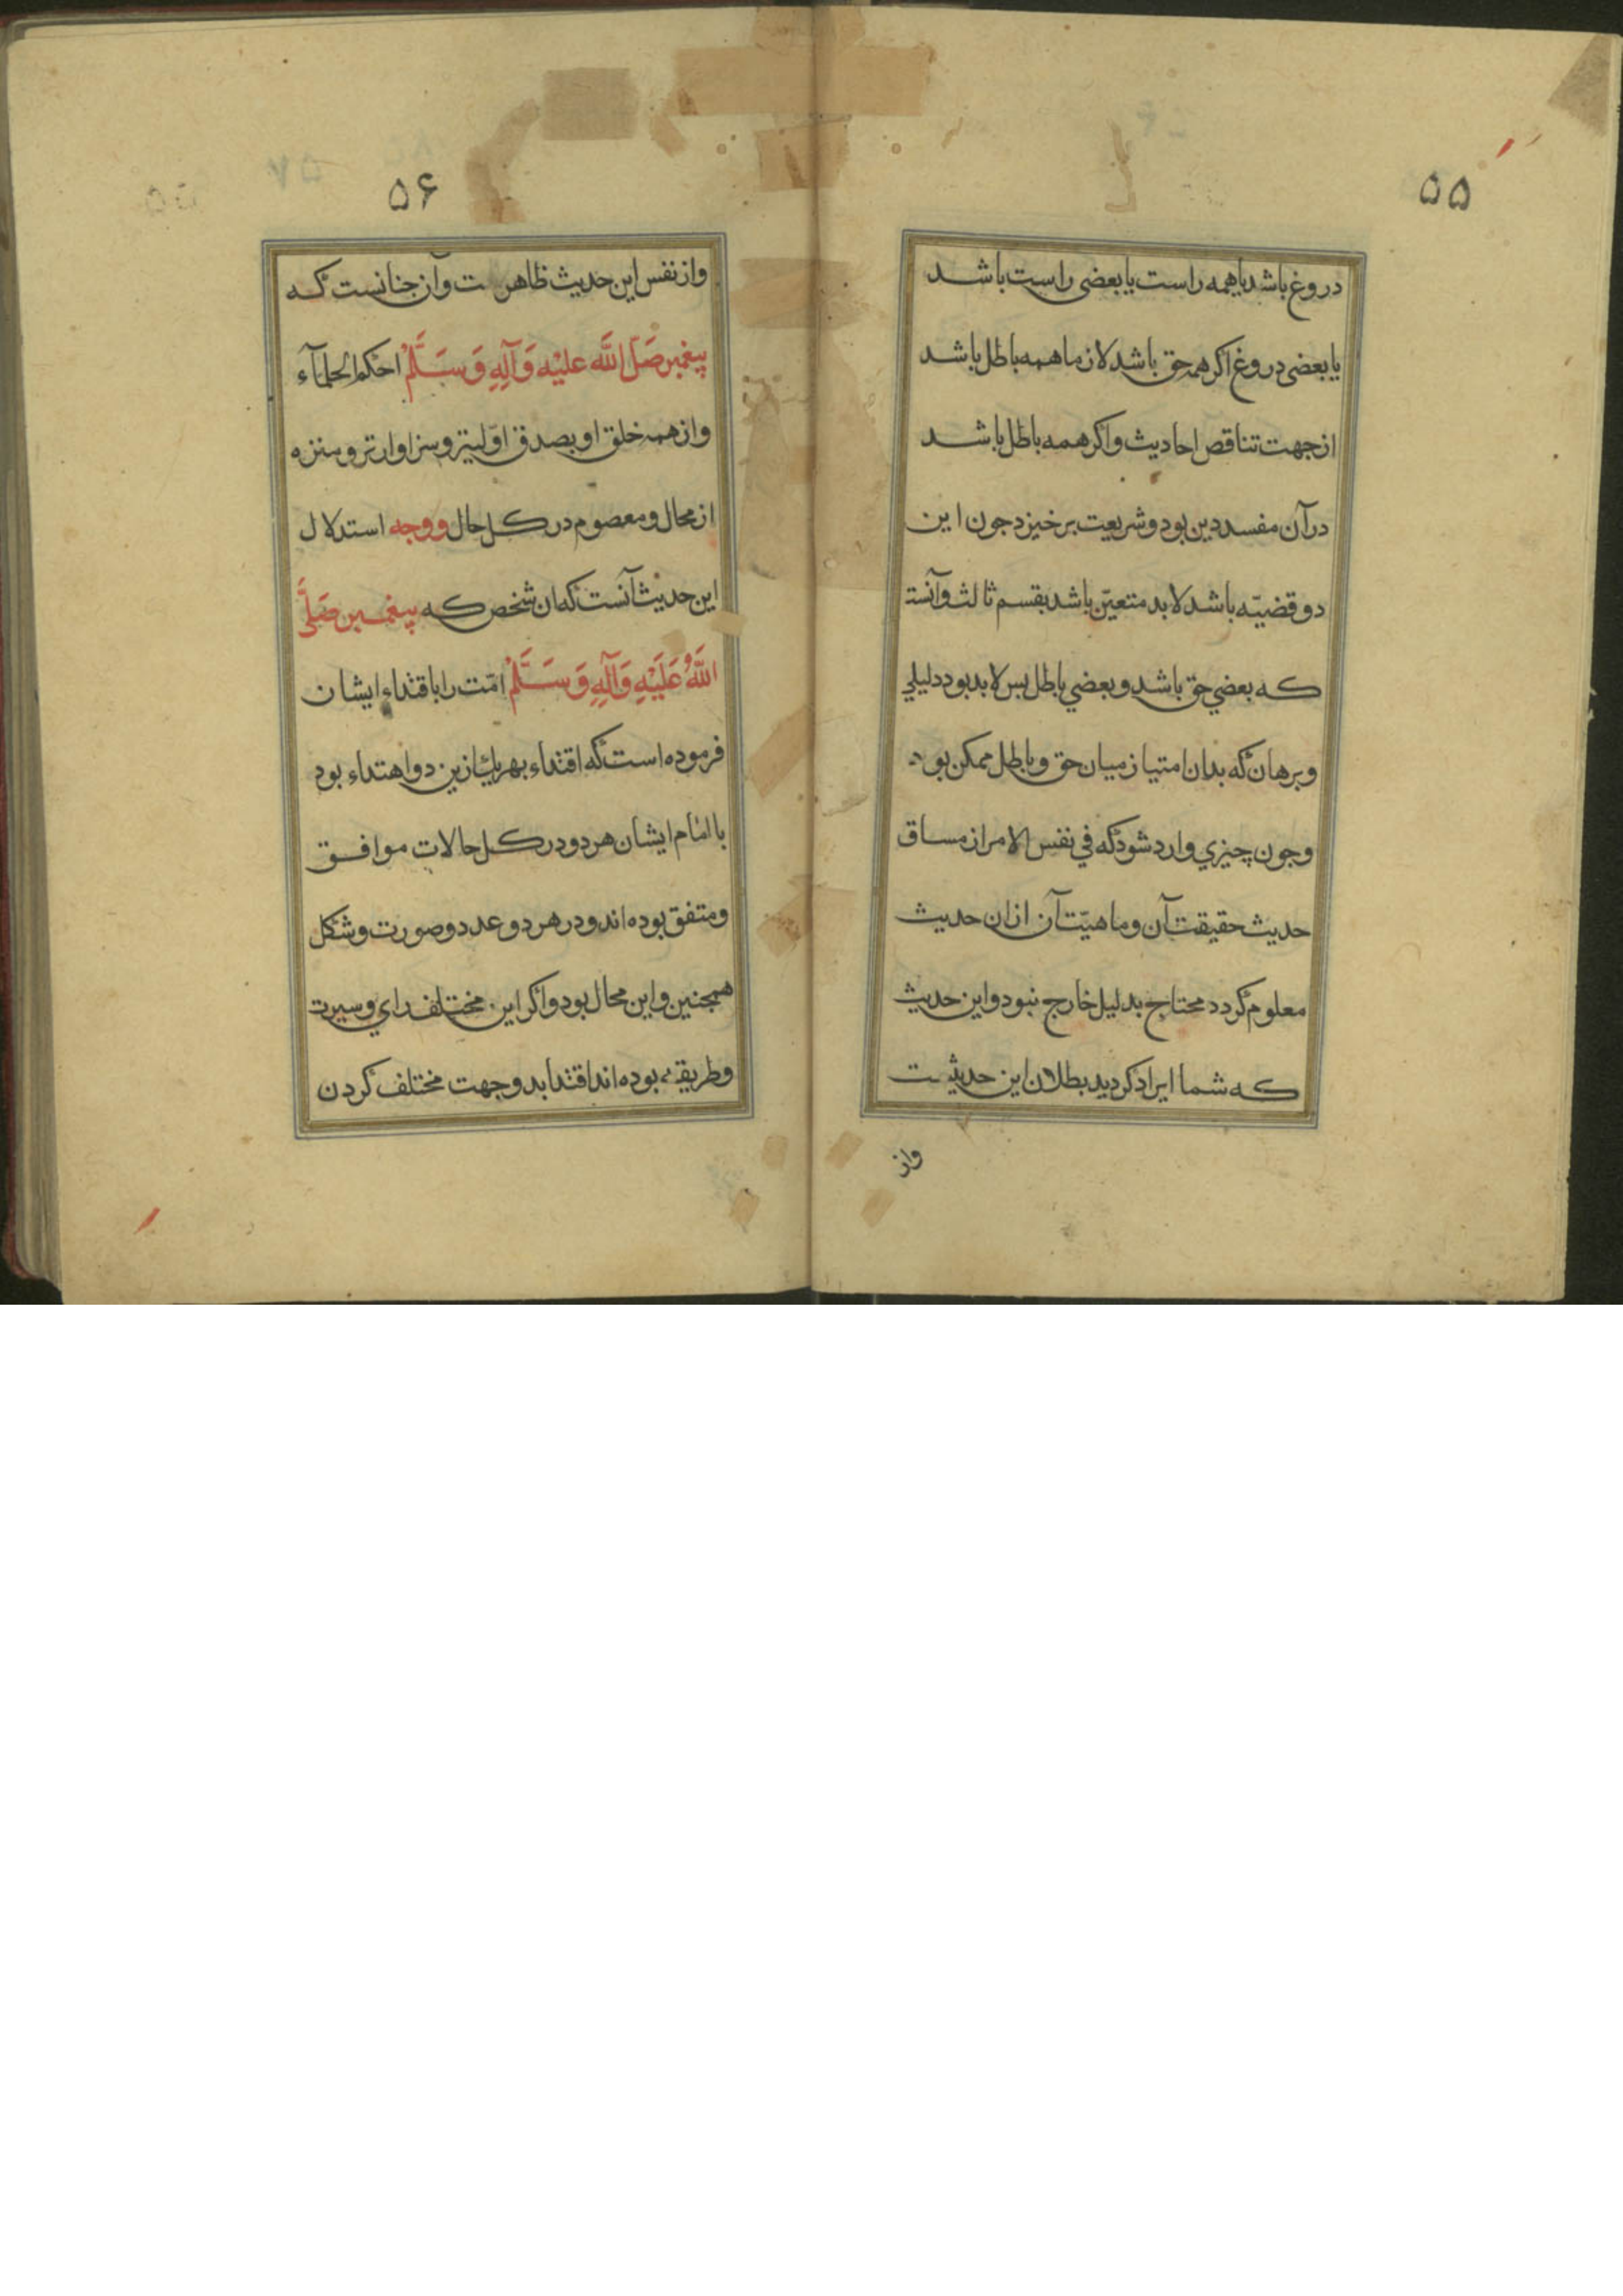 ۵۵
دروغ باشد یا همه راست یا بعضی راست باشد
یا بعضی دروغ اکر همه حق باشد لازم اهمه باطل باشد
از جهت تناقص احادیث واکر همه باطل باشد
در آن مفسد دین بود و شریعت برخیزد جون این
دو قضیّه باشد لابد متعیّن باشد بقسم ثالث وآنست
که بعضي حق باشد و بعضي باطل بس لابد بود دلیلي
و برهان که بدان امتیاز میان حق و باطل ممکن بود
و جون چیزي وارد شود که في نفس الامر از مساق
حدیث حقیقت آن و ماهیّت آن ازان حدیث
معلوم کردد محتاج بدلیل خارج نبود و این حدیث
که شما ایراد کردید بطلان این حدیث
واز
۵۶
واز نفس این حدیث ظاهرست وآن جنانست که
پیغمبر صَلَّى اللَّه علیْه وَآلِهِ وَسَلَّمْ احکم الحکمآء
واز همه خلق او بصدق اوّلیتر و سزاوارتر و منزه
از محال و معصوم در کل حال ووجه استدلال
این حدیث آنست که ان شخص که پیغمبر صَلَّى
اللَّهُ عَلَيْهِ وَآلِهِ وَسَلَّمْ امّت را باقتداء ایشان
فرموده است که اقتداء بهریك ازین دو اهتداء بود
با امام ایشان هر دو در کل حالات موافق
و متفق بوده اند و در هر دو عدد و صورت و شکل
همجنین و این محال بود و اکر این مختلف راي و سیرت
و طریقه بوده اند اقتدا بدو جهت مختلف کردن